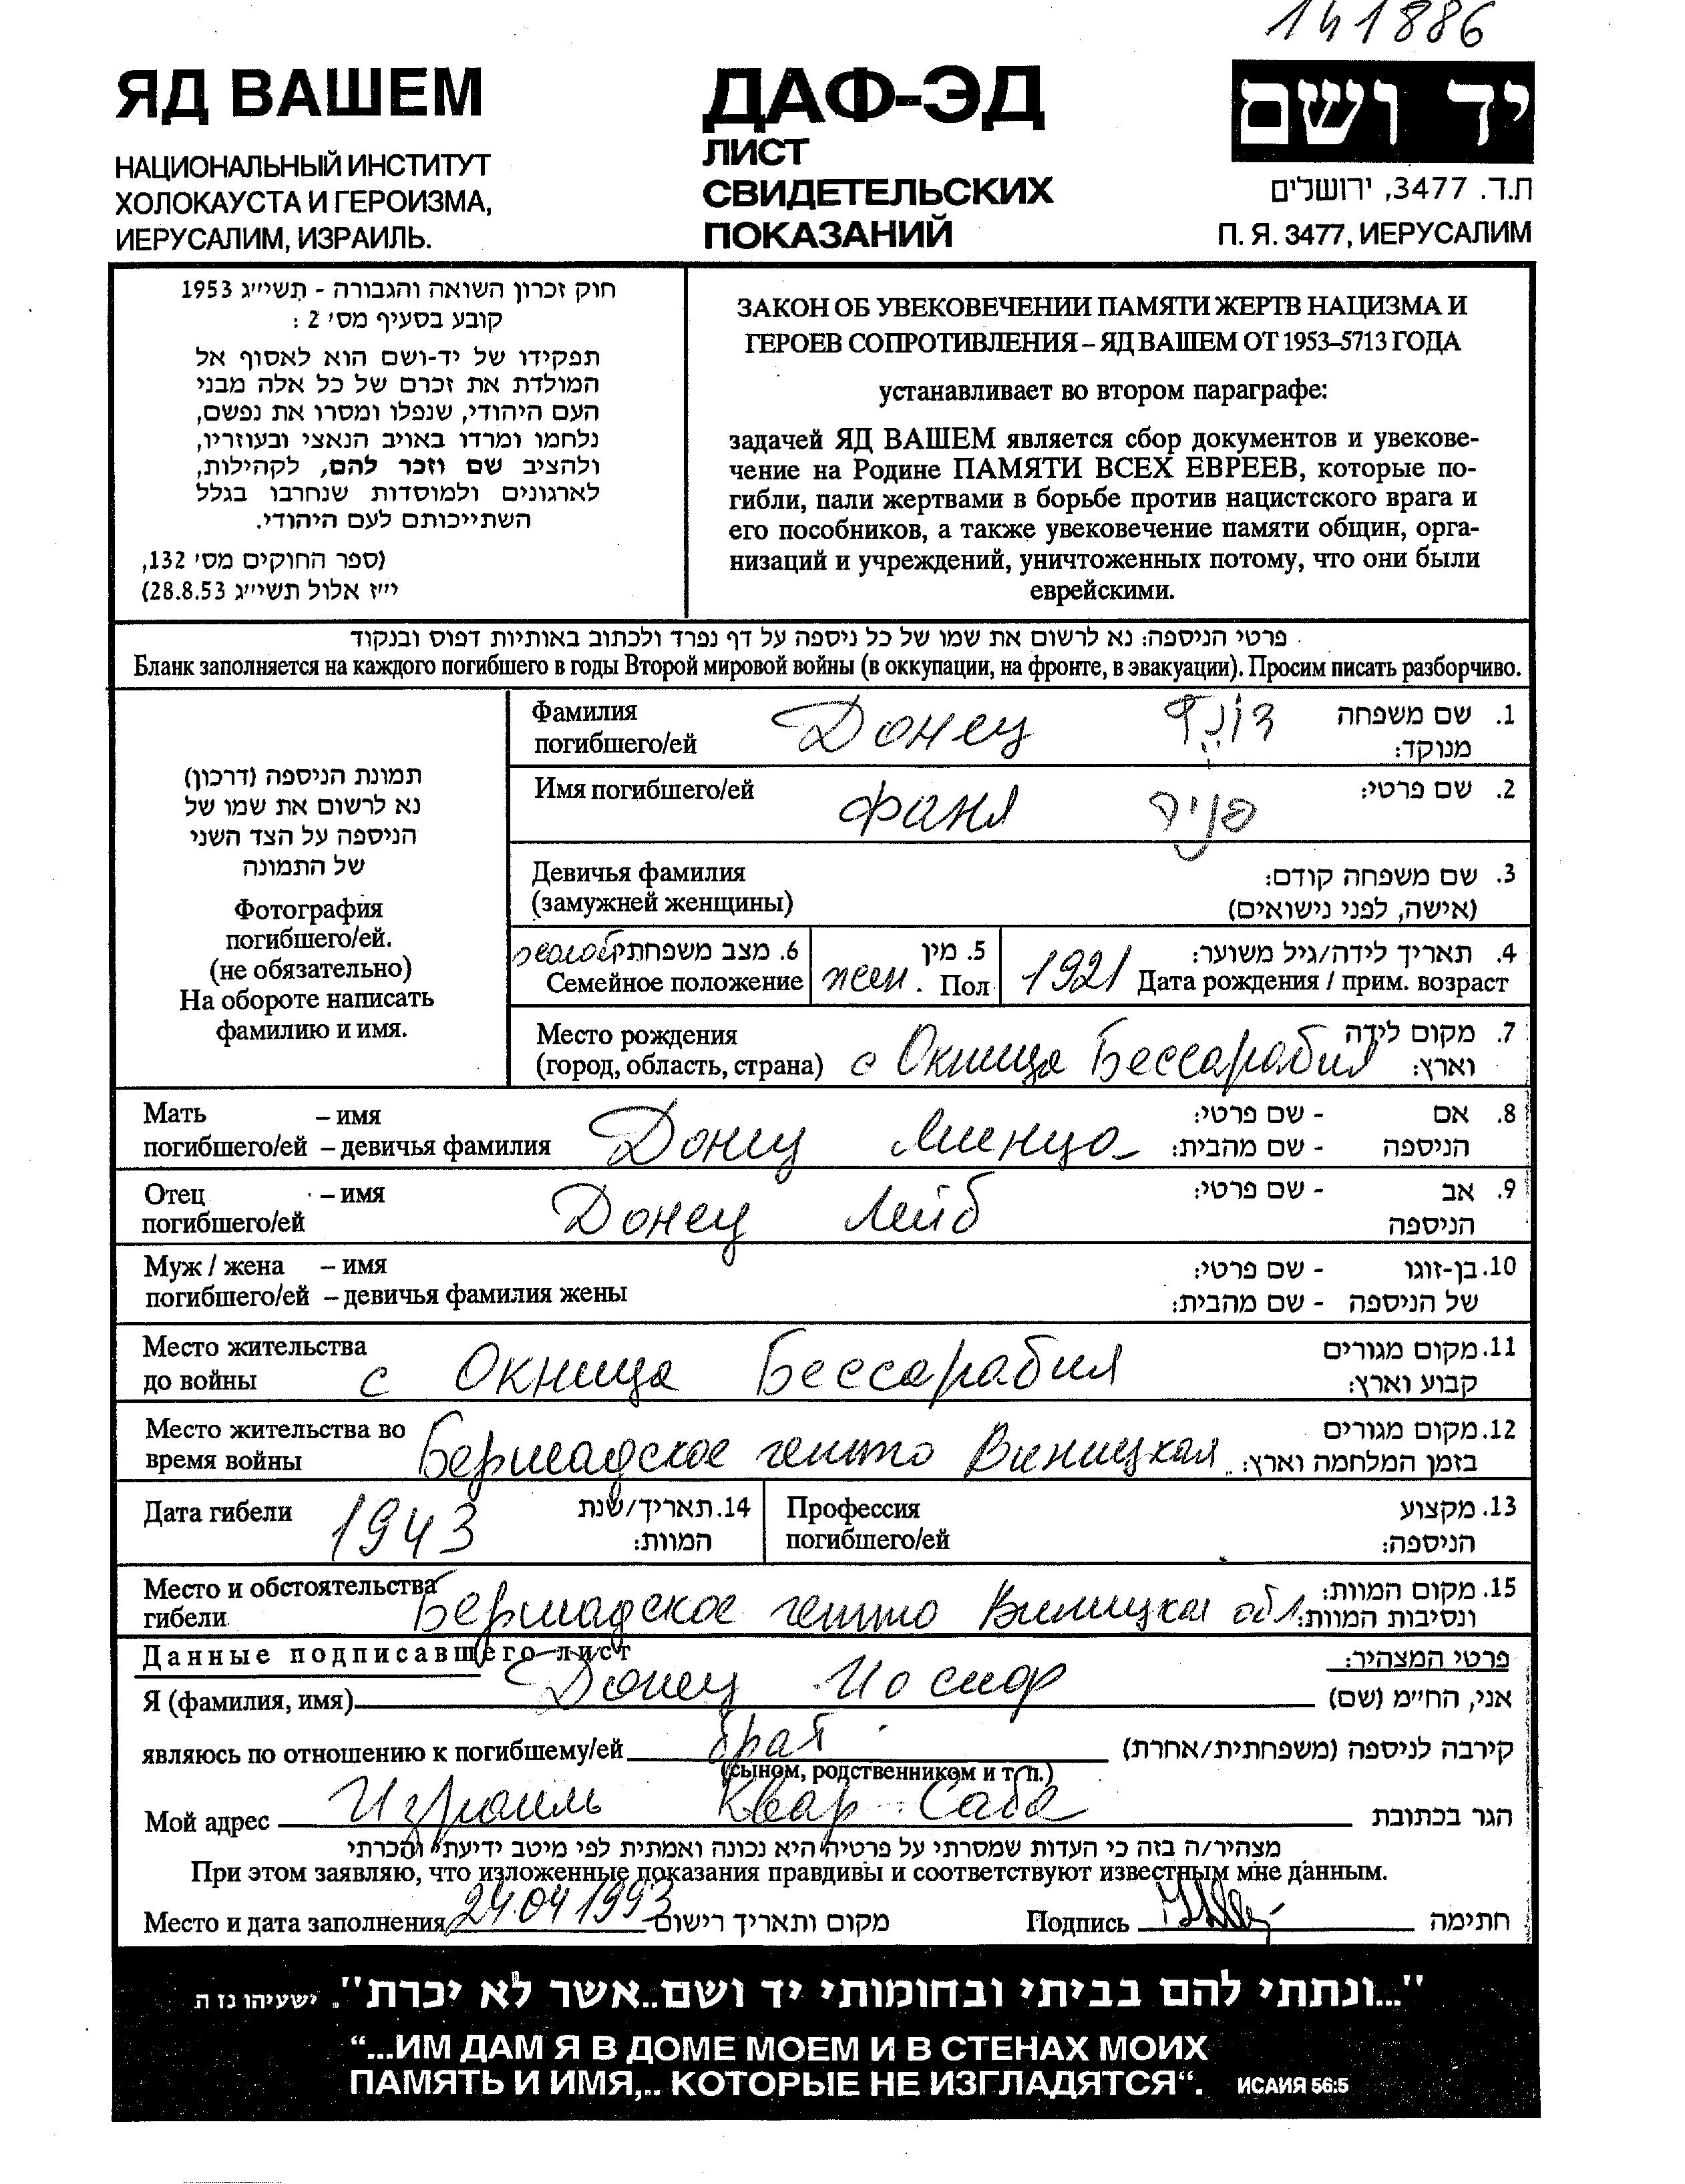 141886
ЯД ВАШЕМ
НАЦИОНАЛЬНЫЙ ИНСТИТУТ
ХОЛОКАУСТА И ГЕРОИЗМА,
ИЕРУСАЛИМ, ИЗРАИЛЬ.
ДАФ-ЭД
ЛИСТ
СВИДЕТЕЛЬСКИХ
ПОКАЗАНИЙ
יד ושם
ת.ד. 3477, ירושלים
П. Я. 3477, ИЕРУСАЛИМ
חוק זכרון השואה והגבורה - תשי״ג 1953
קובע בסעיף מס׳ 2 :
תפקידו של יד-ושם הוא לאסוף אל
המולדת את זכרם של כל אלה מבני
העם היהודי, שנפלו ומסרו את נפשם,
נלחמו ומרדו באויב הנאצי ובעוזריו,
ולהציב שם וזכר להם, לקהילות,
לארגונים ולמוסדות שנחרבו בגלל
השתייכותם לעם היהודי.
(ספר החוקים מס׳ 132,
י״ז אלול תשי״ג 28.8.53)
ЗАКОН ОБ УВЕКОВЕЧЕНИИ ПАМЯТИ ЖЕРТВ НАЦИЗМА И
ГЕРОЕВ СОПРОТИВЛЕНИЯ – ЯД ВАШЕМ ОТ 1953–5713 ГОДА
устанавливает во втором параграфе:
задачей ЯД ВАШЕМ является сбор документов и увекове-
чение на Родине ПАМЯТИ ВСЕХ ЕВРЕЕВ, которые по-
гибли, пали жертвами в борьбе против нацистского врага и
его пособников, а также увековечение памяти общин, орга-
низаций и учреждений, уничтоженных потому, что они были
еврейскими.
פרטי הניספה: נא לרשום את שמו של כל ניספה על דף נפרד ולכתוב באותיות דפוס ובנקוד
Бланк заполняется на каждого погибшего в годы Второй мировой войны (в оккупации, на фронте, в эвакуации). Просим писать разборчиво.
תמונת הניספה (דרכון)
נא לרשום את שמו של
הניספה על הצד השני
של התמונה
Фотография
погибшего/ей.
(не обязательно)
На обороте написать
фамилию и имя.
Фамилия Донец דונץ 1. שם משפחה
погибшего/ей מנוקד:
Имя погибшего/ей Фаня פניה 2. שם פרטי:
Девичья фамилия 3. שם משפחה קודם:
(замужней женщины) (אישה, לפני נישואים)
6. מצב משפחתי 5. מין 4. תאריך לידה/גיל משוער:
Семейное положение жен. Пол 1921 Дата рождения / прим. возраст
Место рождения 7. מקום לידה
(город, область, страна) с Окница Бессарабия וארץ:
Мать – имя 8. אם - שם פרטי:
погибшего/ей – девичья фамилия Донец Минца הניספה - שם מהבית:
Отец – имя 9. אב - שם פרטי:
погибшего/ей Донец Лейб הניספה
Муж / жена – имя 10. בן-זוגו - שם פרטי:
погибшего/ей – девичья фамилия жены של הניספה - שם מהבית:
Место жительства 11. מקום מגורים
до войны с Окница Бессарабия קבוע וארץ:
Место жительства во 12. מקום מגורים
время войны Бершадское гетто Виницкая בזמן המלחמה וארץ:
Дата гибели 1943 14. תאריך/שנת
המוות:
Профессия 13. מקצוע
погибшего/ей הניספה:
Место и обстоятельства 15. מקום המוות:
гибели Бершадское гетто Виницкая обл. ונסיבות המוות:
Данные подписавшего лист פרטי המצהיר:
Я (фамилия, имя) Донец Иосиф אני, החי״מ (שם)
являюсь по отношению к погибшему/ей брат קירבה לניספה (משפחתית/אחרת)
(сыном, родственником и т. п.)
Мой адрес Израиль Квар-Саба הגר בכתובת
מצהיר/ה בזה כי העדות שמסרתי על פרטיה היא נכונה ואמתית לפי מיטב ידיעתי והכרתי
При этом заявляю, что изложенные показания правдивы и соответствуют известным мне данным.
Место и дата заполнения 24.04 1993 מקום ותאריך רישום Подпись חתימה
"...ונתתי להם בביתי ובחומותי יד ושם..אשר לא יכרת". ישעיהו נז ה
“...ИМ ДАМ Я В ДОМЕ МОЕМ И В СТЕНАХ МОИХ
ПАМЯТЬ И ИМЯ,.. КОТОРЫЕ НЕ ИЗГЛАДЯТСЯ“. ИСАИЯ 56:5